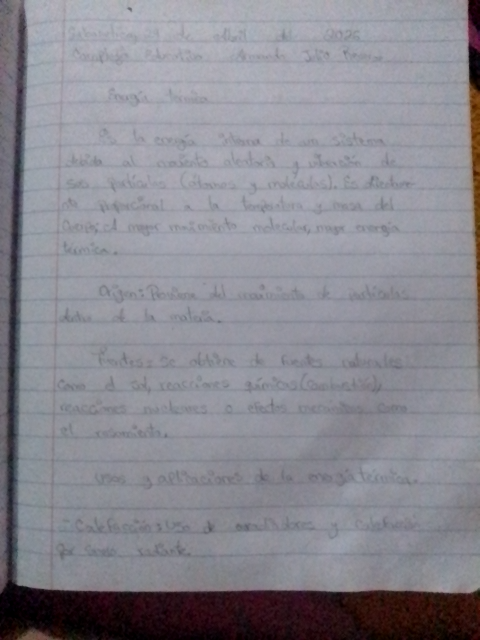 de abril del 2026
Complejo Educativo Armando Julio
Energía térmica
Es la energía interna de un sistema
debida al movimiento aleatorio y vibración de
sus partículas (átomos y moléculas). Es
proporcional a la temperatura y masa del
cuerpo; a mayor movimiento molecular, mayor energía
térmica.
Origen: Proviene del movimiento de partículas
dentro de la materia.
Fuentes: Se obtiene de fuentes naturales
como el sol, reacciones químicas (combustión),
reacciones nucleares o efectos mecánicos como
el rozamiento.
Usos y aplicaciones de la energía térmica.
- Calefacción: Uso de y calefacción
por radiante.